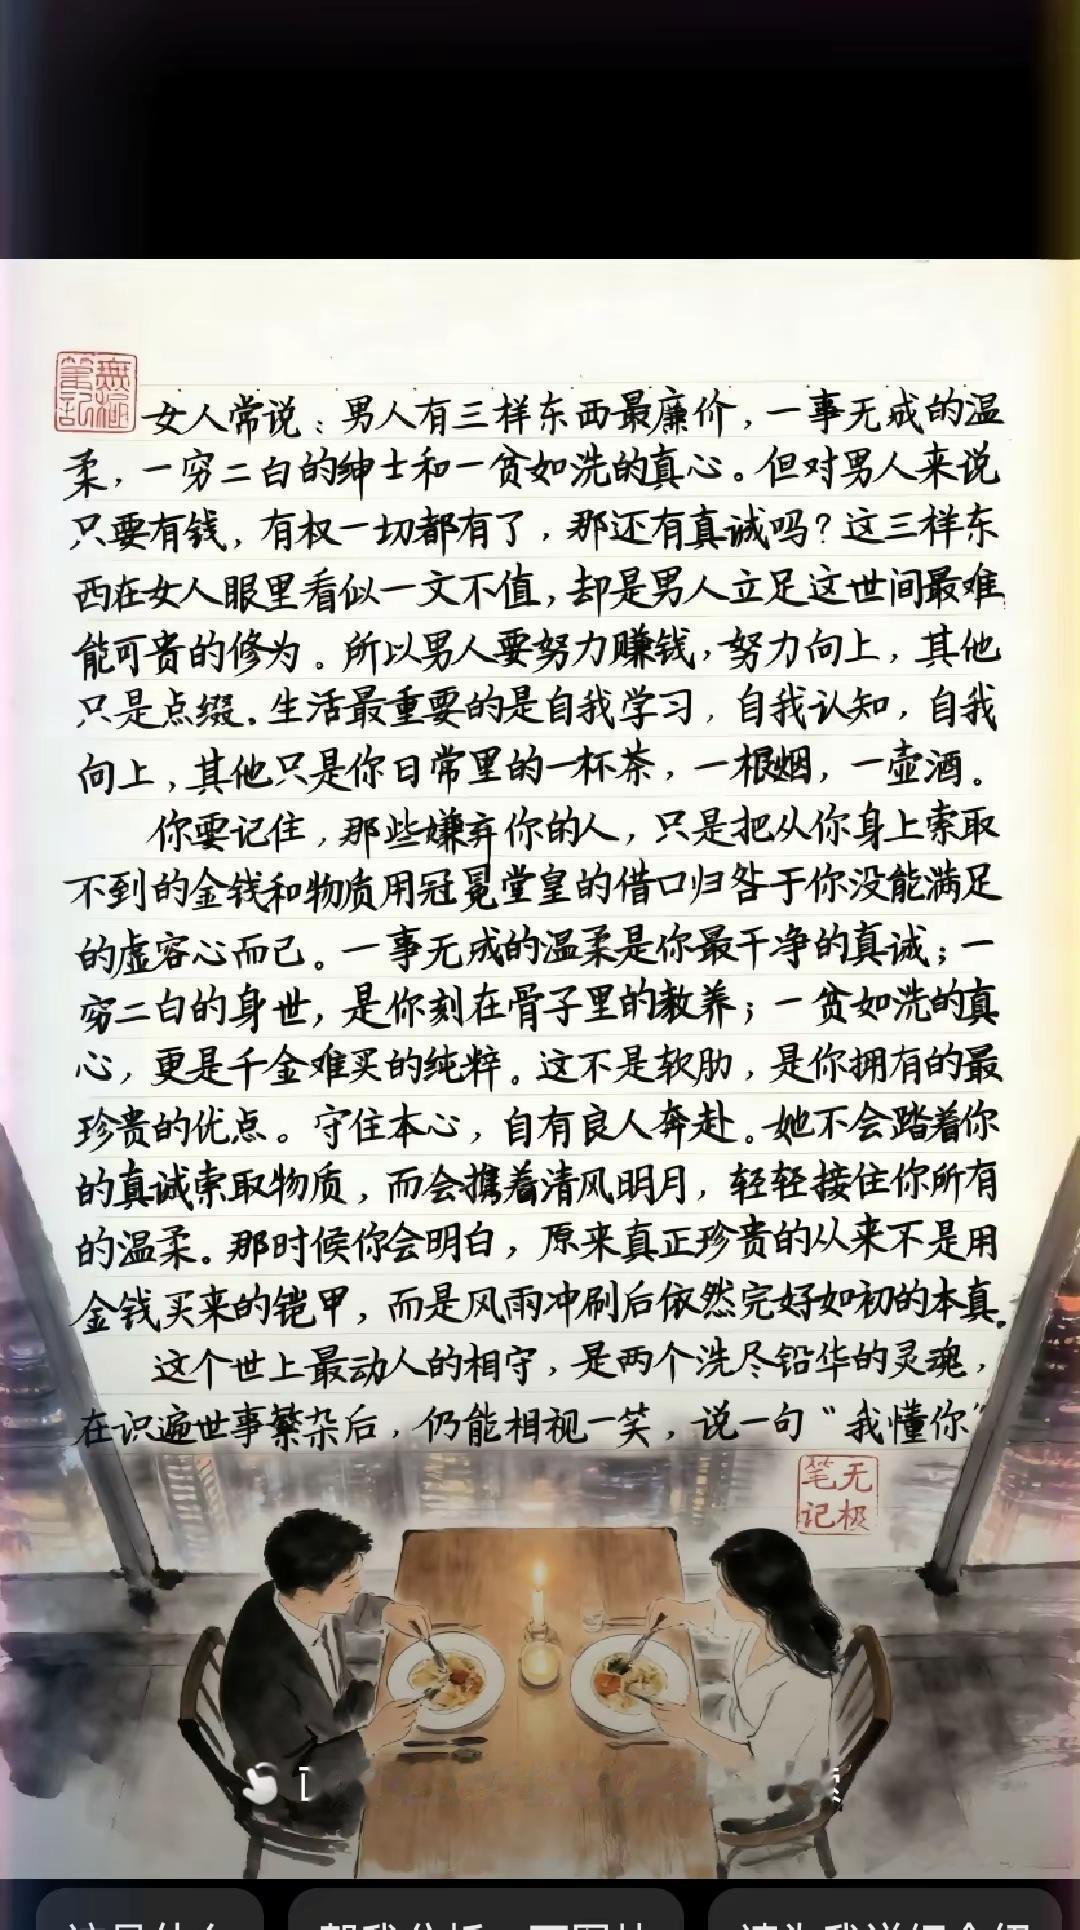 無極筆記
女人常说：男人有三样东西最廉价，一事无成的温
柔，一穷二白的绅士和一贫如洗的真心。但对男人来说
只要有钱，有权一切都有了，那还有真诚吗？这三样东
西在女人眼里看似一文不值，却是男人立足这世间最难
能可贵的修为。所以男人要努力赚钱，努力向上，其他
只是点缀。生活最重要的是自我学习，自我认知，自我
向上，其他只是你日常里的一杯茶，一根烟，一壶酒。
你要记住，那些嫌弃你的人，只是把从你身上索取
不到的金钱和物质用冠冕堂皇的借口归咎于你没能满足
的虚容心而已。一事无成的温柔是你最干净的真诚；一
穷二白的身世，是你刻在骨子里的教养；一贫如洗的真
心，更是千金难买的纯粹。这不是软肋，是你拥有的最
珍贵的优点。守住本心，自有良人奔赴。她不会踏着你
的真诚索取物质，而会携着清风明月，轻轻接住你所有
的温柔。那时候你会明白，原来真正珍贵的从来不是用
金钱买来的铠甲，而是风雨冲刷后依然完好如初的本真。
这个世上最动人的相守，是两个洗尽铅华的灵魂，
在识遍世事繁杂后，仍能相视一笑，说一句“我懂你”
无极笔记